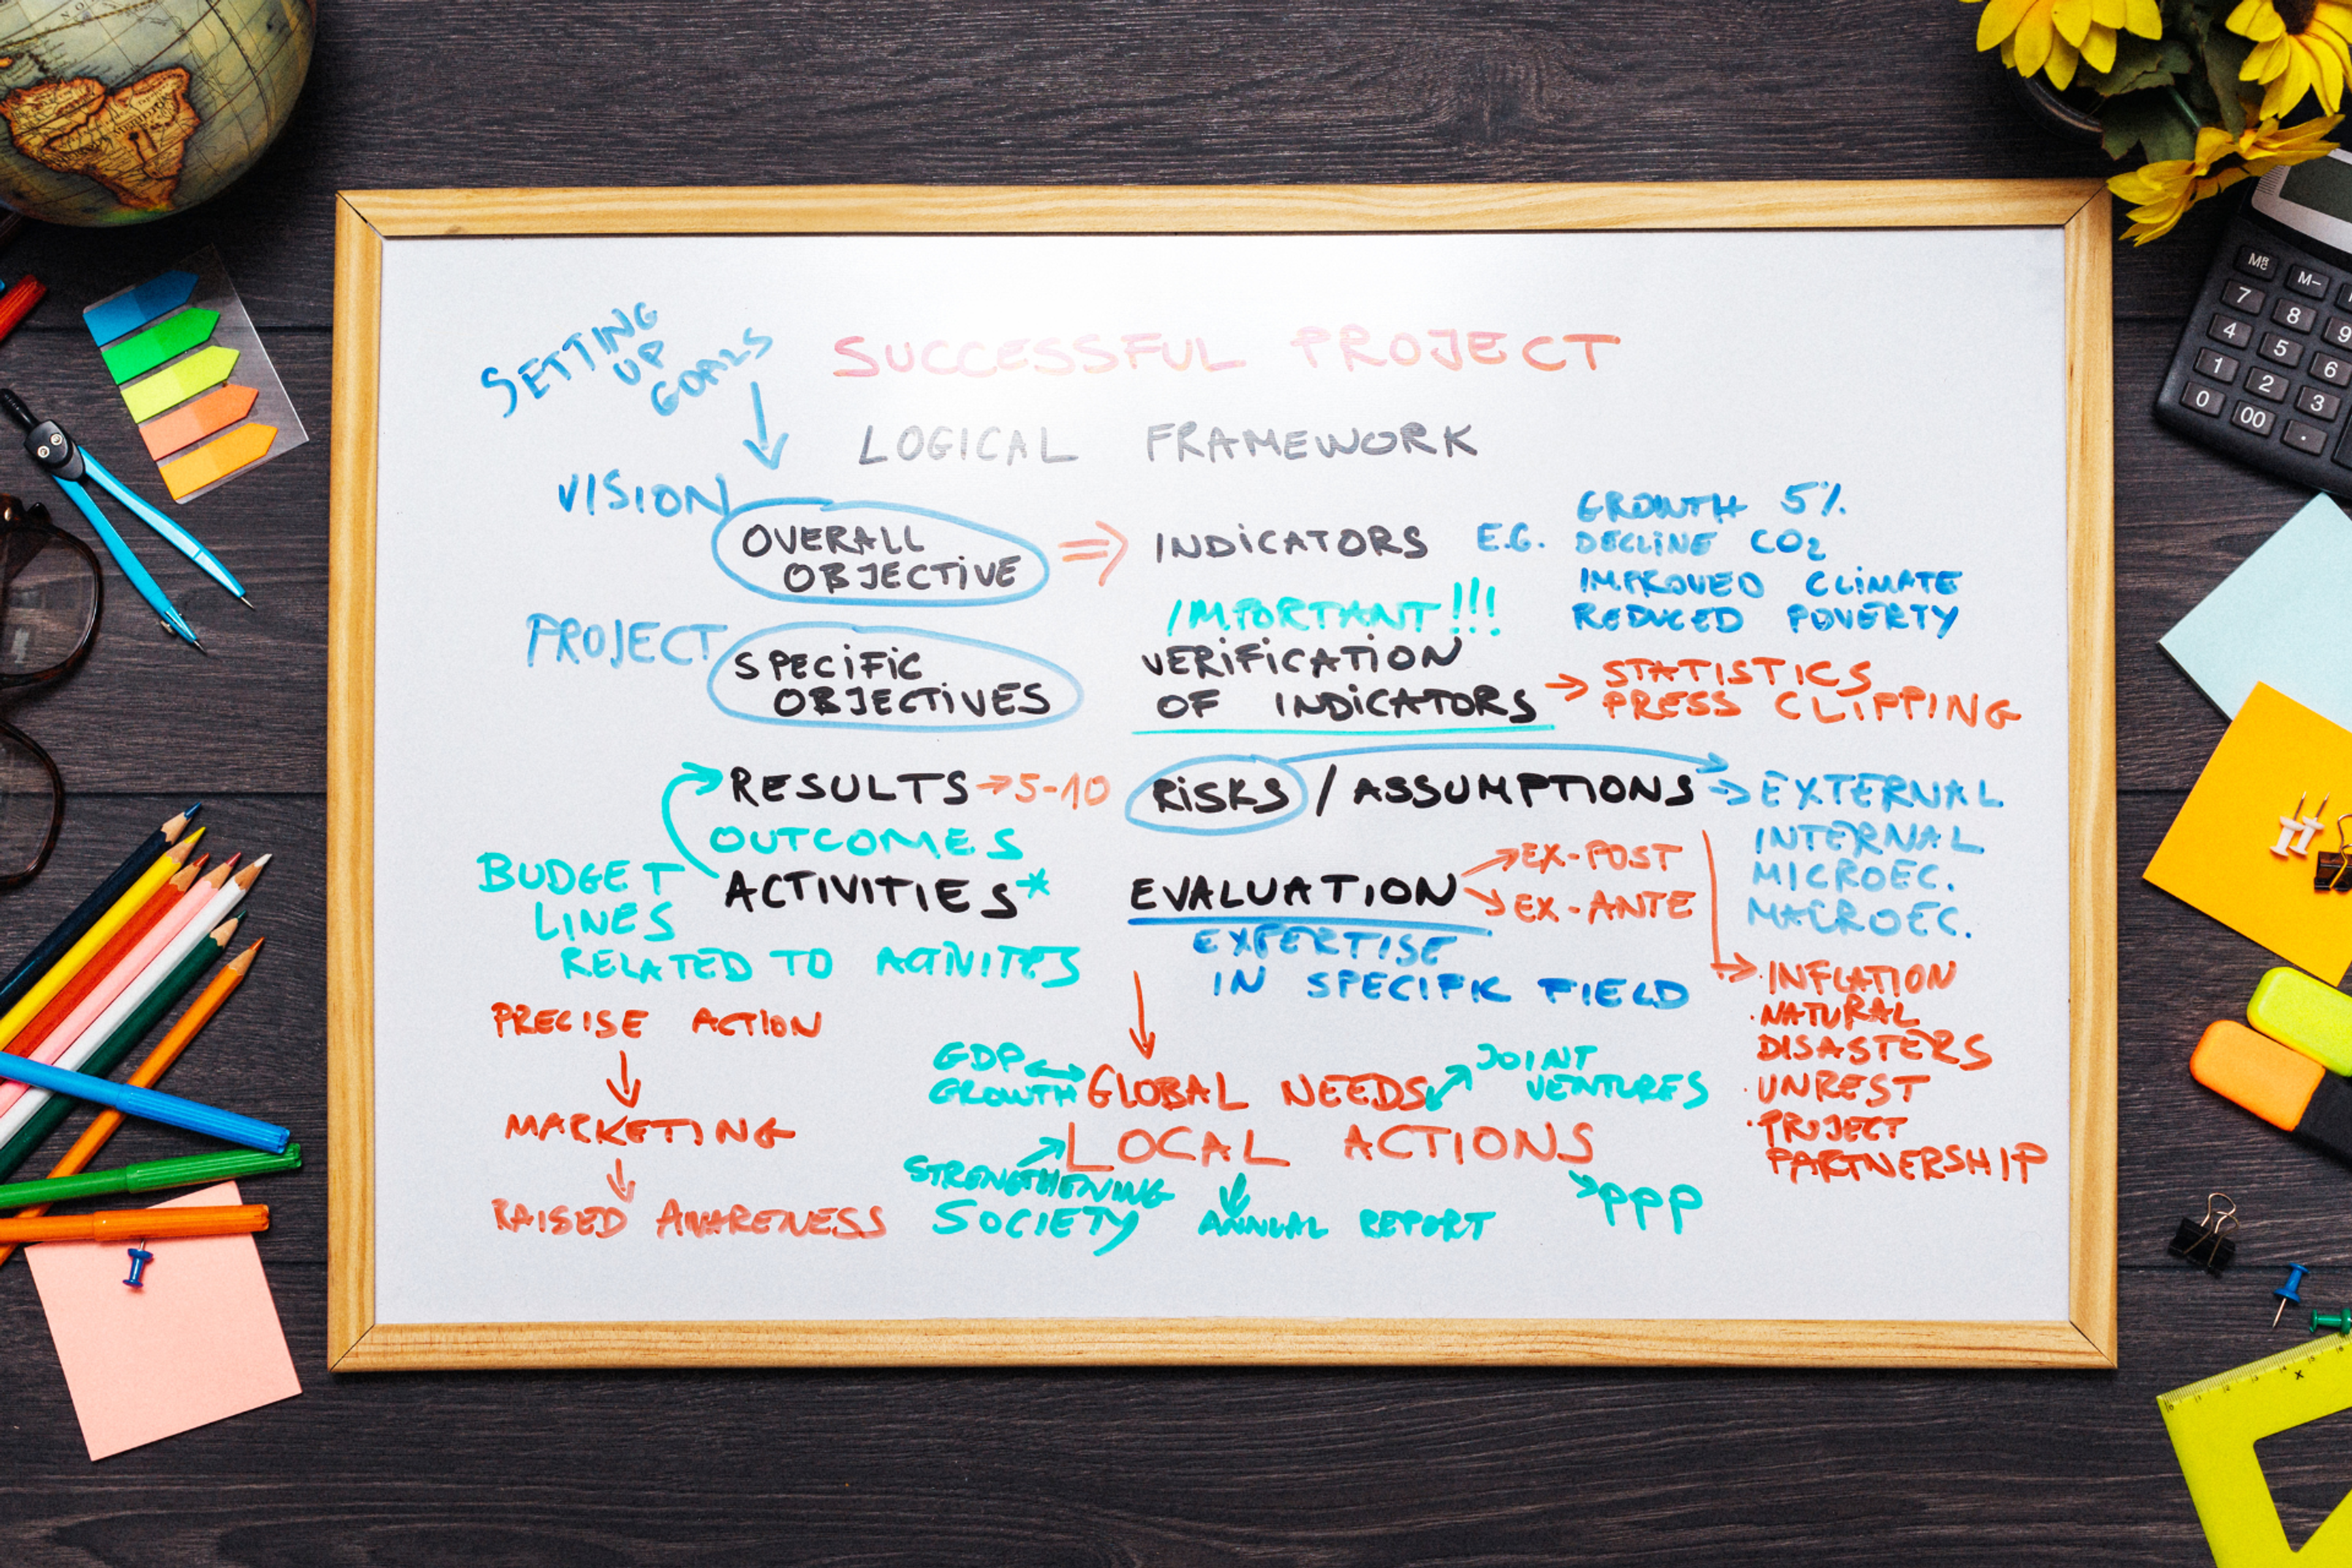 SETTING
UP
GOALS
SUCCESSFUL PROJECT
LOGICAL FRAMEWORK
VISION
OVERALL
OBJECTIVE
⇒ INDICATORS E.G.
GROWTH 5%
DECLINE CO2
IMPROVED CLIMATE
REDUCED POVERTY
PROJECT
SPECIFIC
OBJECTIVES
IMPORTANT!!!
VERIFICATION
OF INDICATORS →
STATISTICS
PRESS CLIPPING
RESULTS → 5-10
OUTCOMES
ACTIVITIES*
BUDGET
LINES
RELATED TO ACTIVITES
RISKS / ASSUMPTIONS →
EXTERNAL
INTERNAL
MICROEC.
MACROEC.
EVALUATION
EX-POST
EX-ANTE
EXPERTISE
IN SPECIFIC FIELD
· INFLATION
· NATURAL
DISASTERS
· UNREST
· PROJECT
PARTNERSHIP
PRECISE ACTION
↓
MARKETING
↓
RAISED AWARENESS
GDP
GROWTH
GLOBAL NEEDS
JOINT
VENTURES
LOCAL ACTIONS
STRENGTHENING
SOCIETY
ANNUAL REPORT
PPP
M-
7
8
9
4
5
6
1
2
3
0
00
.